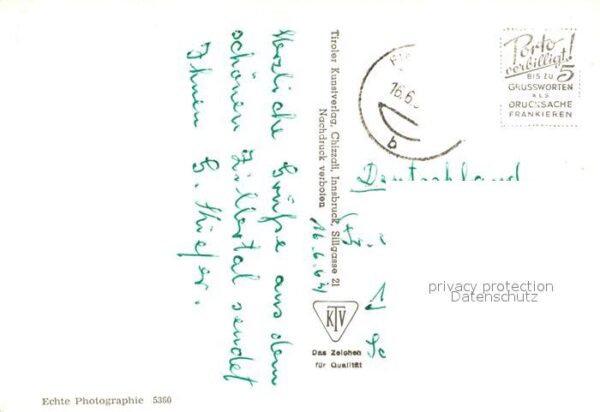 Herzliche Grüße aus dem
schönen Zillertal sendet
Ihnen
Tiroler Kunstverlag, Chizzali, Innsbruck, Sillgasse 21
Nachdruck verboten
16.6.64
KTV
Das Zeichen
für Qualität
16.6.
b
Porto
verbilligt!
BIS ZU 5
GRUSSWORTEN
ALS
DRUCKSACHE
FRANKIEREN
Deutschland
1
privacy protection
Datenschutz
Echte Photographie 5360